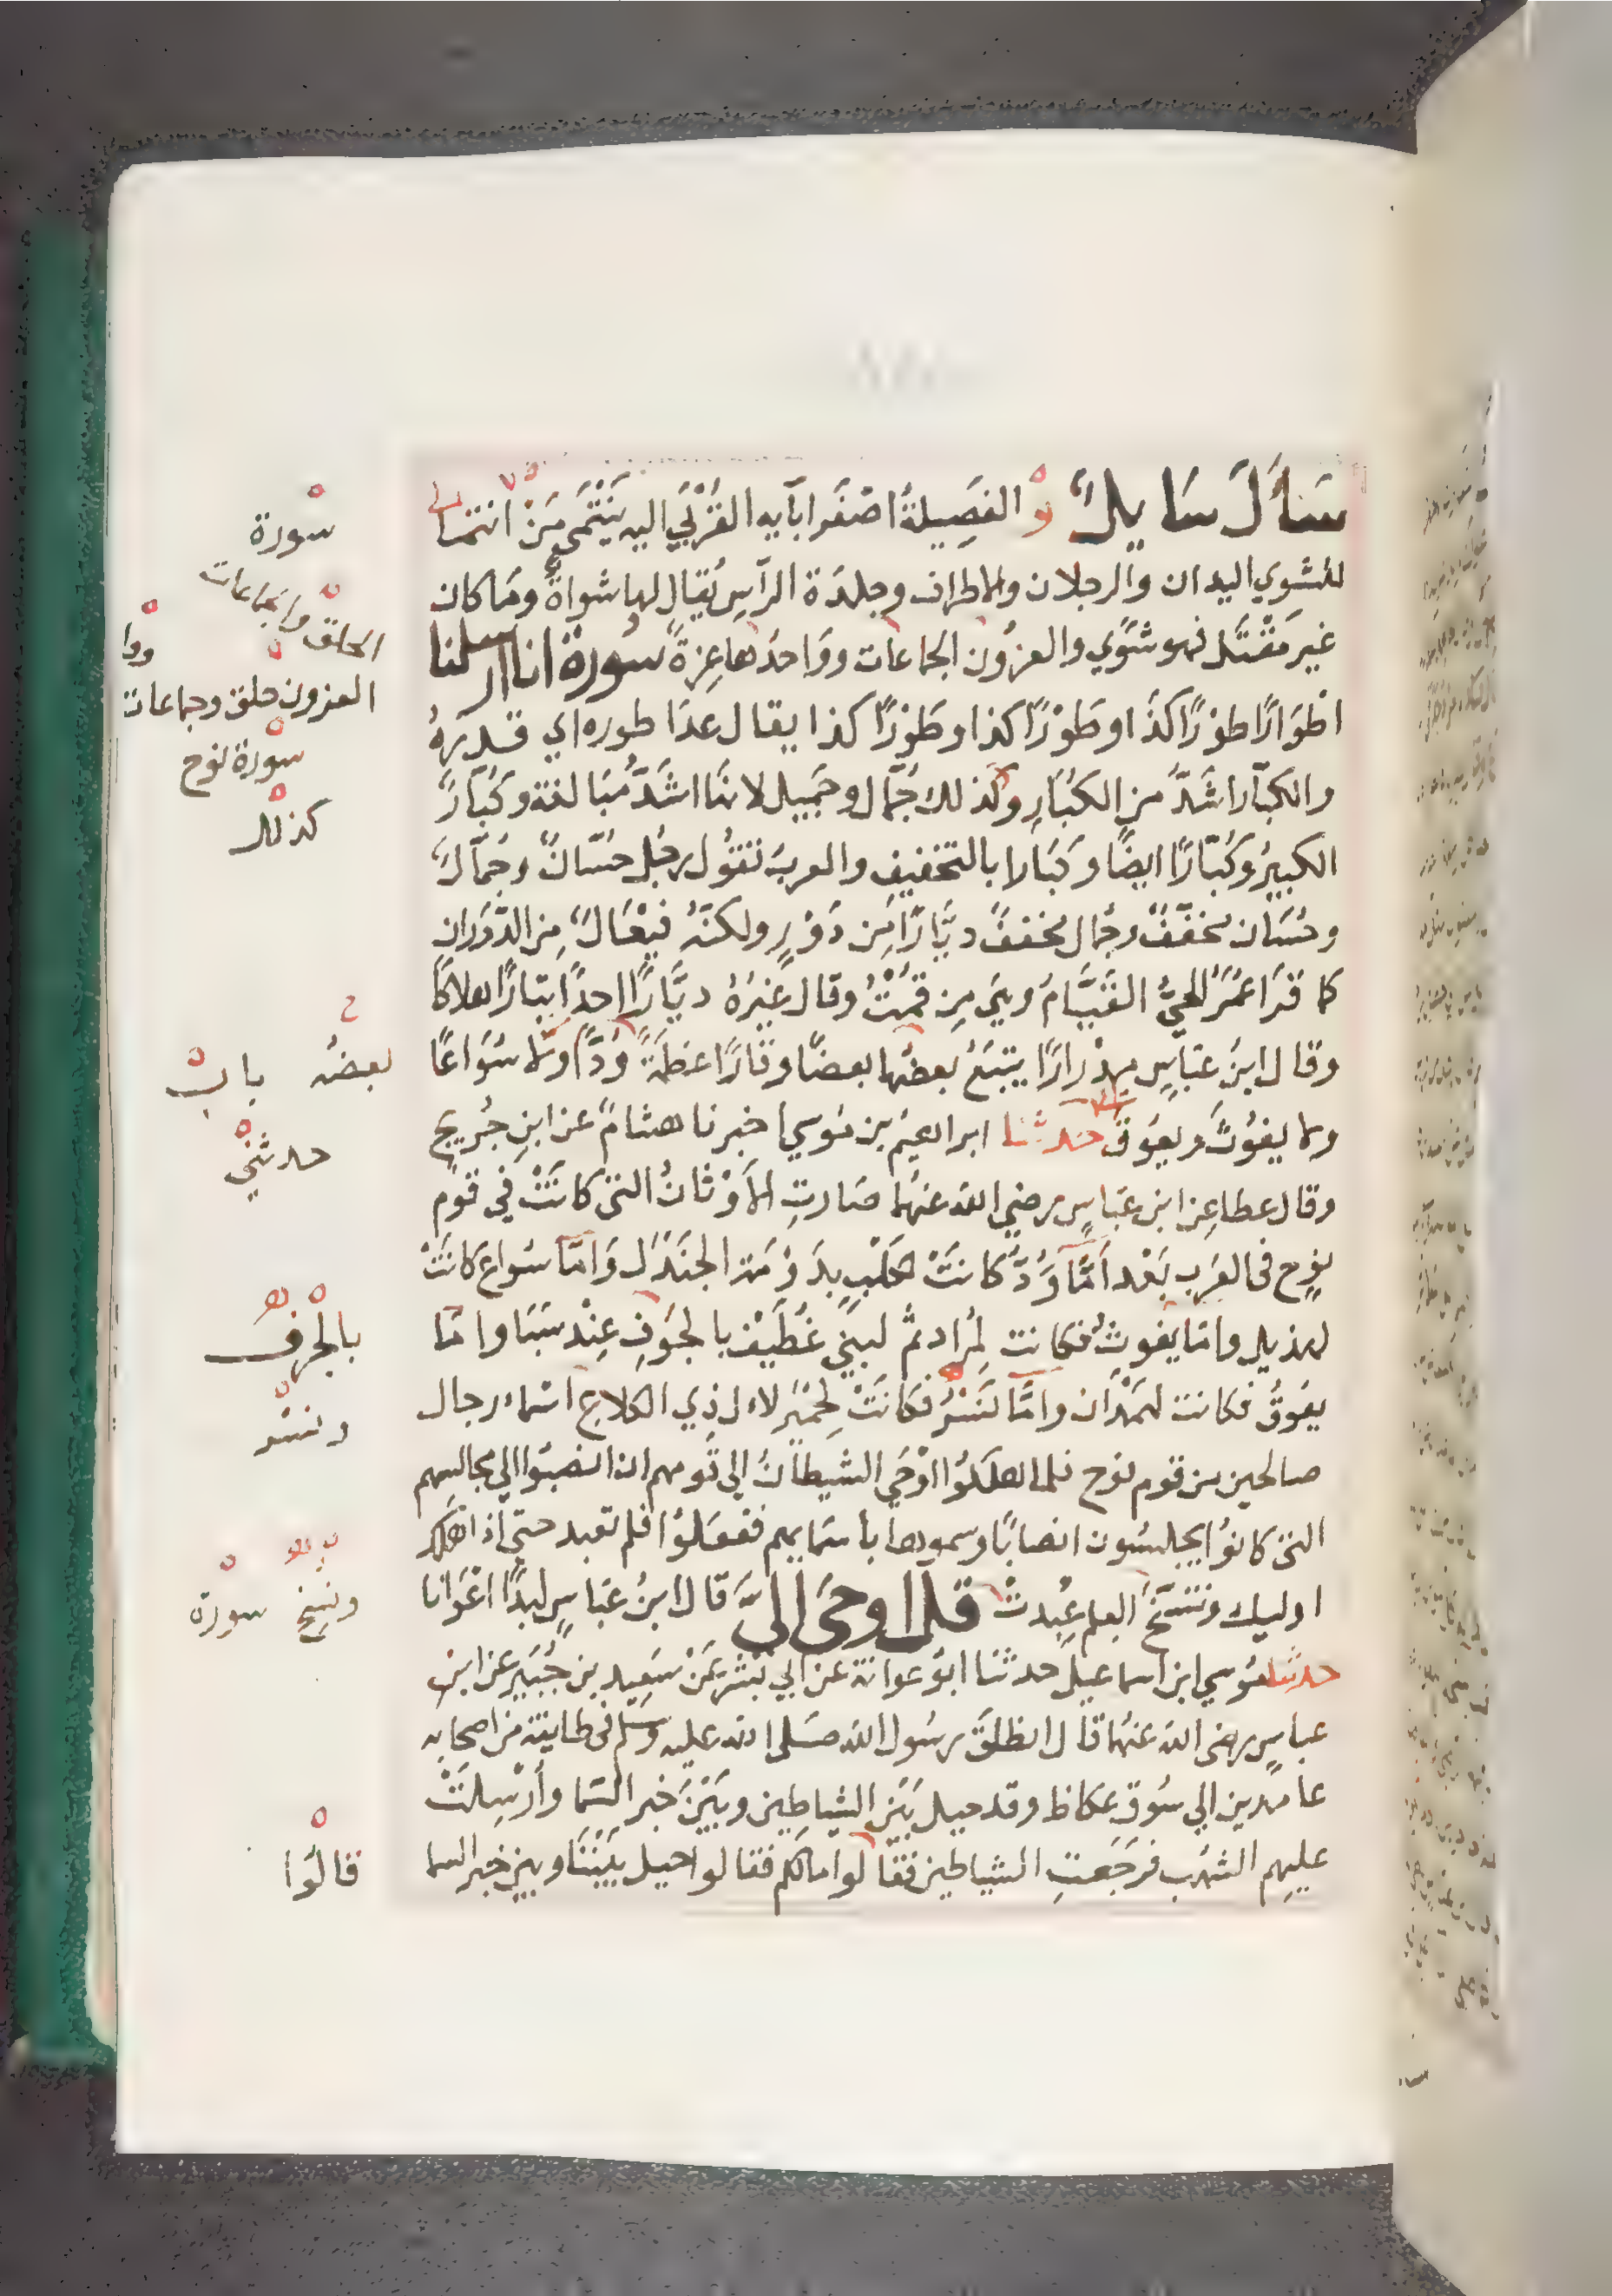 سَأَلَ سَايِلٌ و الفَصِيلَةُ اصْغَرُ ابَآيهِ القُرْبَي اليه يَنْتَمَى مَنْ انتمَا
للشوي اليدان والرجلان والاطراف وجلدَة الرأسِ يُقال لها شواةٌ ومَا كان
غير مَقْتَل فهو شَوًي والعزُون الجماعات ووَاحدُها عِزةٌ سُورة انا ارسلنا
اطْوَارًا طوْرًا كذَا وطَوْرًا كذا وطَوْرًا كذا يقال عدَا طوره اي قَدرَهُ
والكبَّار اشَدُّ من الكُبَارِ وكذلك جُمَّال وجَمِيل لانهَا اشَدُّ مُبَالغة وكُبَّارٌ
الكبيرُ وكُبَّارًا ايضًا وكُبَارا بالتخفيف والعربُ تَقُول رجُل حُسَّانٌ وجُمَّالٌ
وحُسَان مخفَّفٌ وجُمال مخففٌ ديَّارًا مِن دَوْرٍ ولكنَّهُ فَيْعَالٌ مِن الدَّوَرَانِ
كما قرَا عُمَرُ الحيُّ القَيَّامُ وهي مِن قُمْتُ وقال غيرُهُ ديَّارًا احدًا تبَارًا هلاكًا
وقال ابنُ عبَاسٍ مِدْرارًا يتبَعُ بعضُها بعضًا وقَارًا عَظمَةً وَدًّا ولا سُوَاعًا
ولا يغوُثَ ويعَوُق حدثنا ابراهيمُ بن مُوسي اخبرنا هشامٌ عن ابنِ جُريج
وقال عطا عن ابن عبَاسٍ رضي الله عنهُما صَارتِ الأوْثانُ التى كانَتْ في قومِ
نوحٍ فى العَرب بَعْد امَّا وَدٌّ كانتْ لكَلْبٍ بدَوْمَة الجنْدَل وَامَّا سُواع كانتْ
لهذيل وامَّا يغوثُ فكانت لِمُراد ثم لبني غُطَيْف بالجَوفِ عنْد سَبَا وامَّا
يعَوقُ فكانت لهَمْدَان وامَّا نَسْرٌ فكانَتْ لِحِمْيَر لاءل ذِي الكلاعِ اسْماء رجال
صالحين من قوم نوح فلما هلكُوا اوْحَي الشيطانُ الى قَومهم ان انصبُوا الي مجالسِهم
التى كانوُا يجلسُون انصابًا وسموها بأسمَايهم ففعَلوُا فلم تعبد حتى اذا هلك
اوليك وتنَسَّخَ العِلم عُبِدتْ قل اوحى الىَّ قال ابنُ عبَاسٍ لِبدًا اعْوَانا
حدثنا مُوسي ابن اسماعيل حدثنا ابوُ عوانة عن ابي بشْر عَنْ سَعِيد بن جُبَيرٍ عن ابن
عباسٍ رضى الله عنهُما قال انطلقَ رسُول الله صَلى الله عليه وسَلم فى طايفة من اصحابه
عامدين الي سُوق عكاظ وقد حيل بَيْن الشياطِين وبَيْن خبر السَّما وأُرْسِلتْ
عليهم الشهُب فرجَعتِ الشياطين فقالوا مالكم فقالوا حيل بيْننَا وبين خبر السما
سورة
الحلق والجماعات
ودا
العزون حلق وجماعات
سورة نوح
كذلك
بعضُه بابٌ
حدثني
بالجُرف
ونسرٌ
ونسِخ سورة
قالوُا